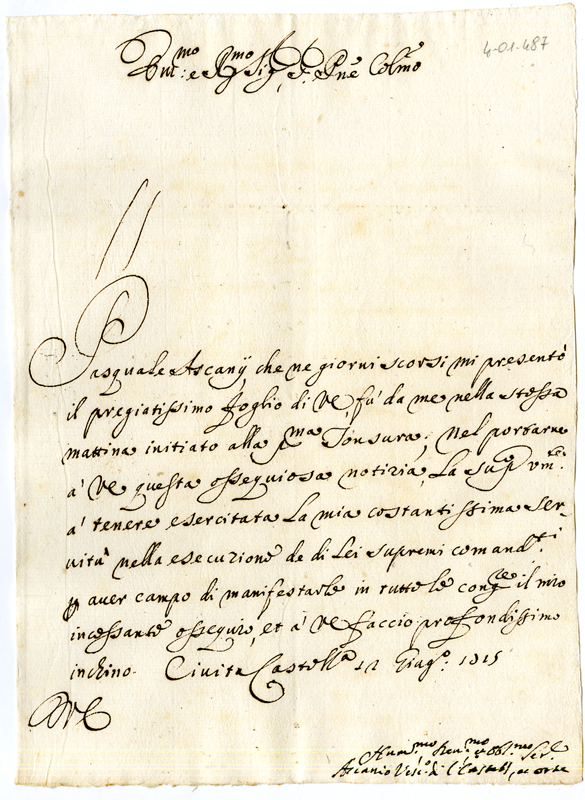 4-01-487
Ill.mo e R.mo Sig.r, e P.ne Col.mo
Pasquale Ascanÿ che ne giorni scorsi mi presentò
il pregiatissimo foglio di VE, fù da me nella stessa
mattina initiato alla p.ma Tonsura; Nel portarne
à VE questa ossequiosa notizia, La sup.co vm.te
à tenere esercitata La mia costantissima ser-
vitù nella esecuzione de di Lei supremi comand.ti
p aver campo di manifestarle in tutte le cong.re il mio
incessante ossequio, et à VE faccio profondissimo
inchino. Civita Castell.a 12 Giug.o
VE
Hum.mo Dev.mo et Obl.mo Ser.
Ascanio Vesc.o di C. Castell., et Orte